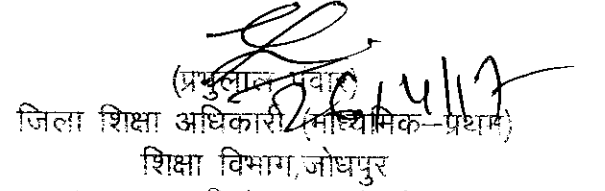 (प्रभुलाल पंवार)
26/4/17
जिला शिक्षा अधिकारी (माध्यमिक–प्रथम)
शिक्षा विभाग,जोधपुर